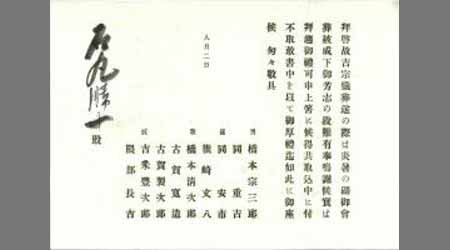 拜啓故吉宗儀葬送の際は炎暑の砌御會
葬被成下御芳志の段難有奉鳴謝候實は
拜趨御禮可申上筈に候得共取込中に付
不取敢書中を以て御厚禮迄如此に御座
候 匆々敬具
八月二日
男 橋本宗三郎
岡重吉
岡安市
熊崎文八
橋本淸次郎
古賀寬造
古賀製次郎
吉米豐次郎
磯部長吉
殿